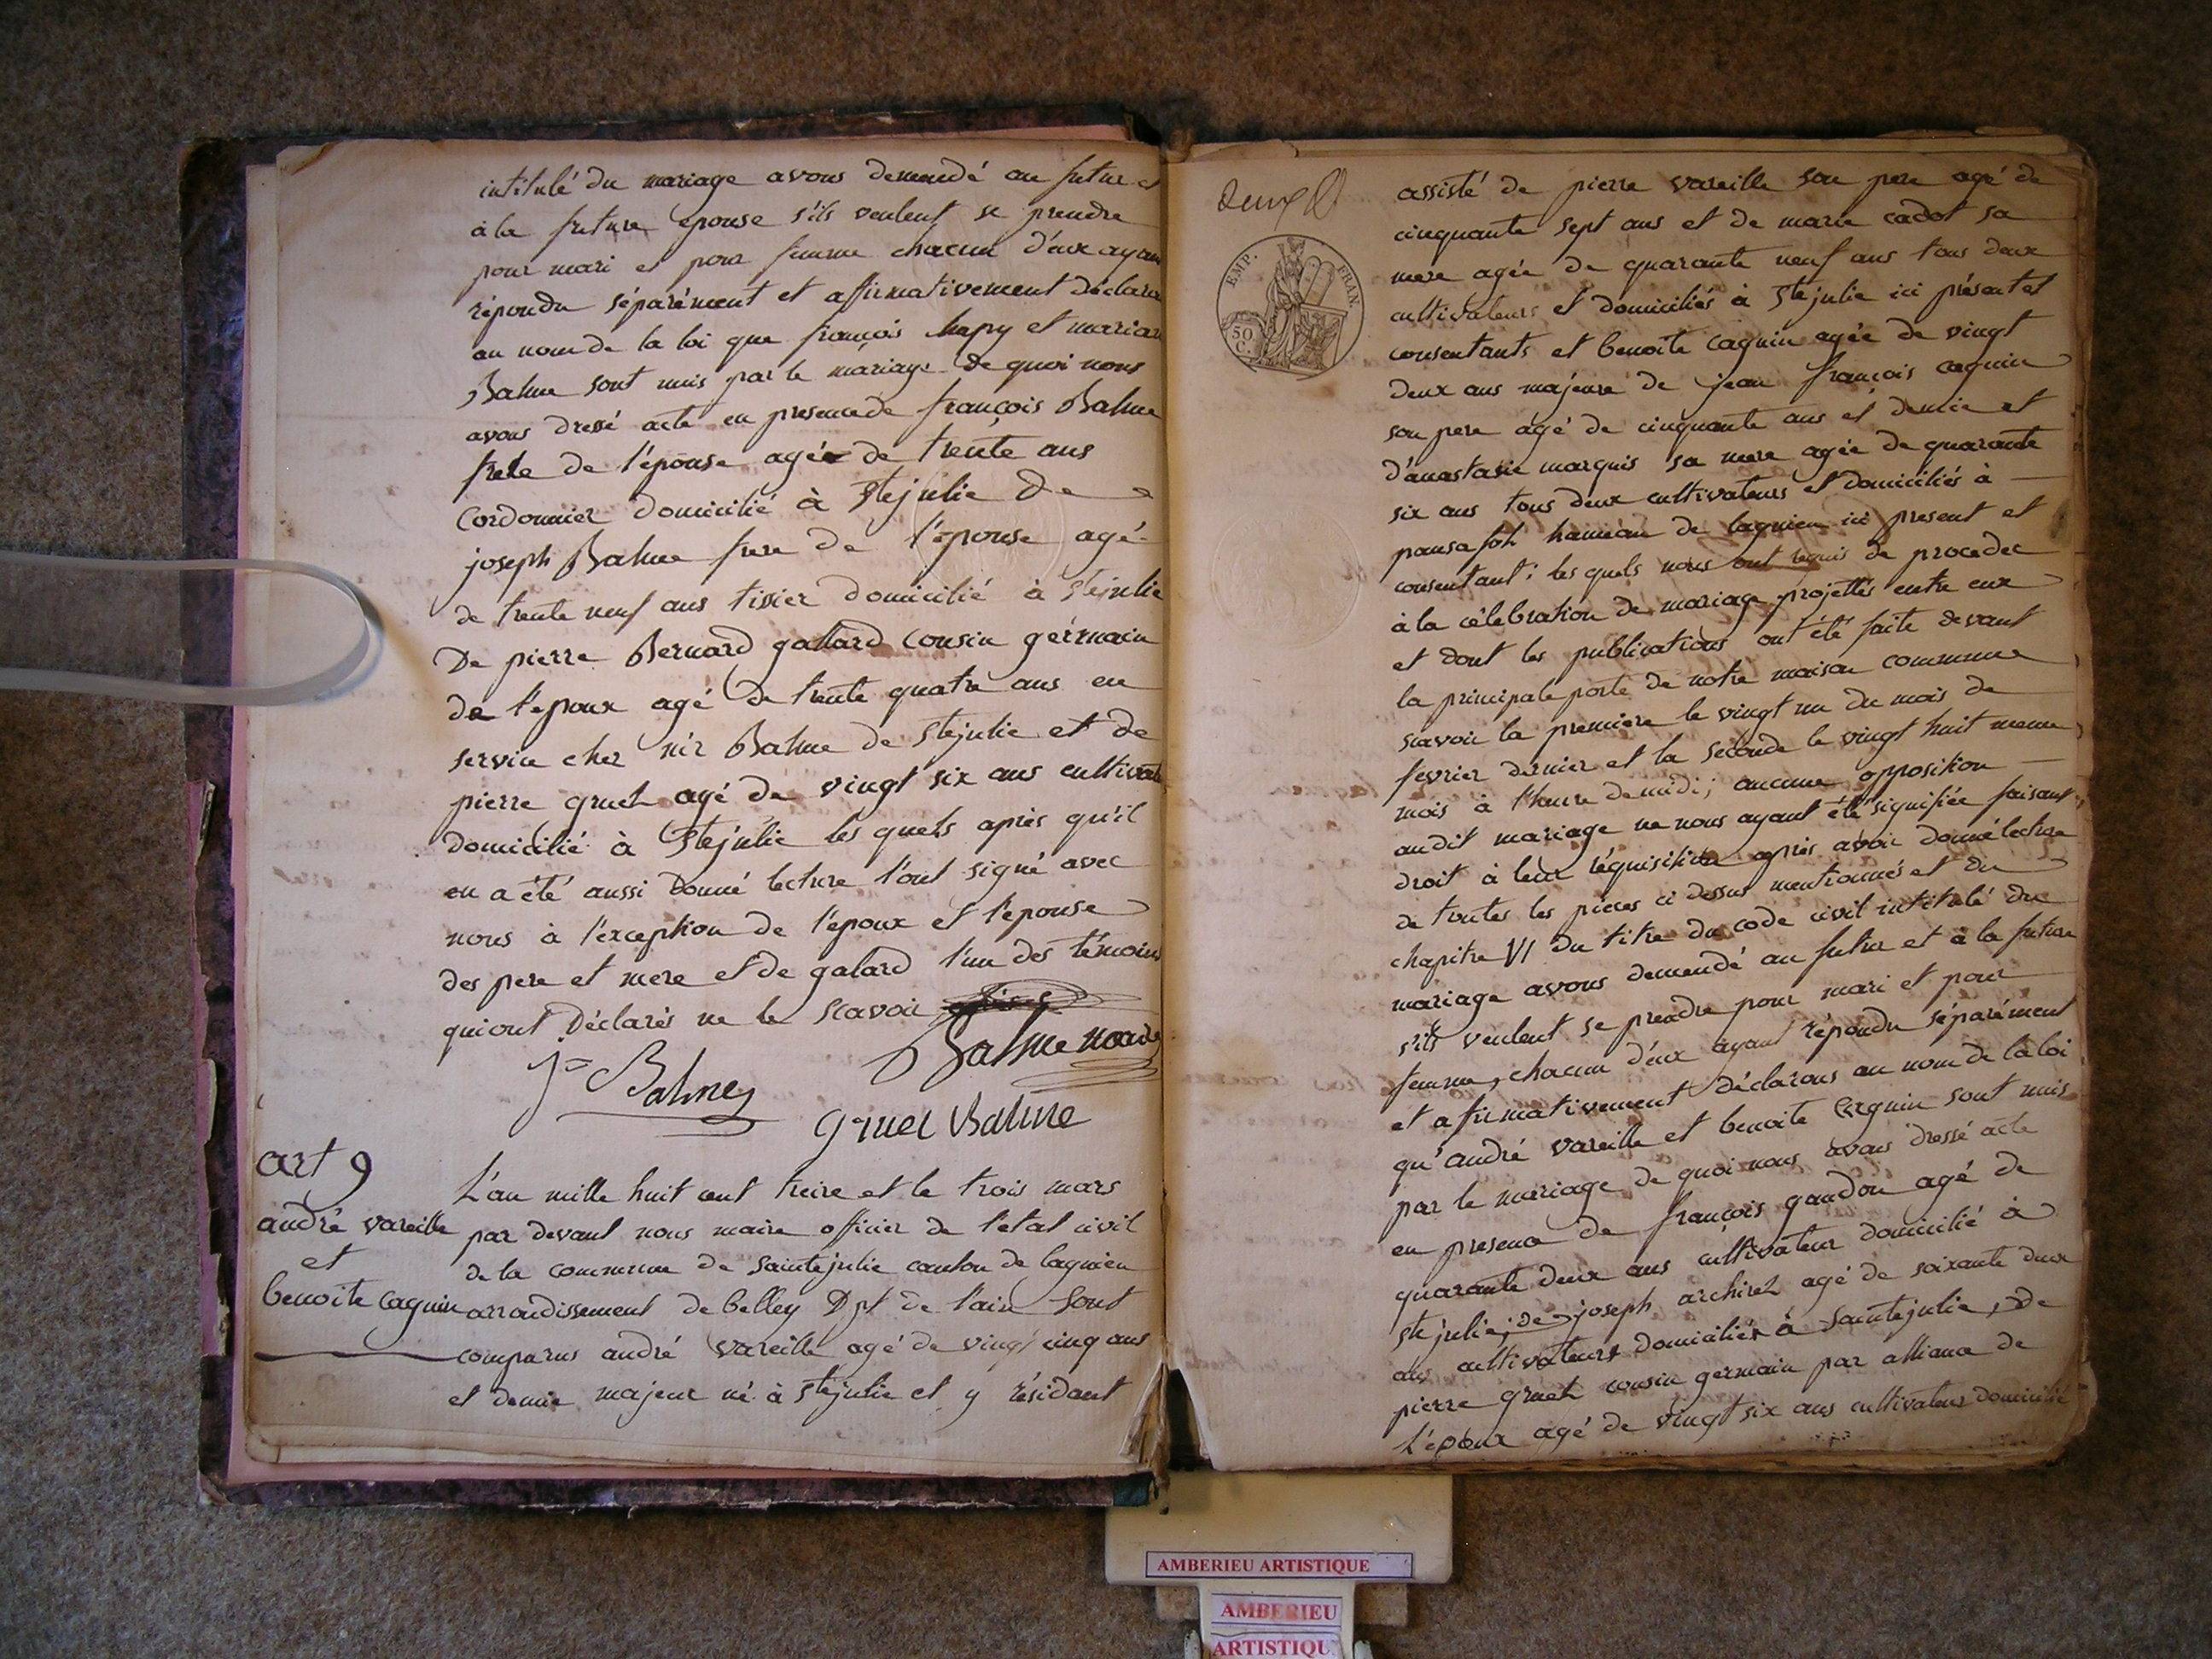 intitulé du mariage avons demendé au futur et
à la future epouse s'ils veulent se prendre
pour mari et pour femme chacun d'eux ayant
répondu séparément et affirmativement déclarons
au nom de la loi que françois hapy et marian
Balme sont unis par le mariage de quoi nous
avons dressé acte en presence de françois Balme
frere de l'épouse agé de trente ans
cordonnier domicilié à Stejulie De
joseph Balme frere de l'épouse agé
de trente neuf ans tissier domicilié à Stejulie
De pierre Bernard gallard cousin gérmain
de l'epoux agé de trente quatre ans en
service chez Balme de Stejulie et de
pierre gruel agé de vingt six ans cultivate
domicilié à Stejulie les quels après qu'il
en a été aussi donné lecture l'ont signé avec
nous à l'exception de l'époux et l'épouse
des pere et mere et de galard l'un des témoins
qui ont déclarés ne le scavoir
Balme maire
Jh Balme
gruel Balme
art 9
andré vareille
et
benoite caguin
L'an mille huit cent treize et le trois mars
par devant nous maire officier de l'etat civil
de la commune de Saintejulie canton de lagnieu
arrondissement de belley Dpt de l'ain Sont
comparus andré vareille agé de vingt cinq ans
et demie majeur né à Stejulie et y résidant
deux
EMP. FRAN.
50
C.
assisté de pierre vareille son pere agé de
cinquante sept ans et de marie cadot sa
mere agée de quarante neuf ans tous deux
cultivateurs et domiciliés à Stejulie ici présent et
consentants et benoite caguin agée de vingt
deux ans majeure de jean françois caguin
son pere agé de cinquante ans et demie et
d'anastasie marquis sa mere agée de quarante
six ans tous deux cultivateurs et domiciliés à
hameau de lagnieu ici present et
consentant: les quels nous ont requis de proceder
à la célebration de mariage projettés entre eux
et dont les publications ont été faite devant
la principale porte de notre maison commune
scavoir la premiere le vingt un du mois de
fevrier dernier et la seconde le vingt huit meme
mois à l'heure de midi; aucune opposition
audit mariage ne nous ayant été signifiée faisant
droit à leur réquisition après avoir donné lecture
de toutes les pièces ci dessus mentionnés et du
chapitre VI du titre du code civil intitulé du
mariage avons demendé au futur et à la future
s'ils veulent se prendre pour mari et pour
femme, chacun d'eux ayant répondu séparément
et afirmativement déclarons au nom de la loi
qu'andré vareille et benoite caguin sont unis
par le mariage de quoi nous avons dressé acte
en presence de françois gaudon agé de
quarante deux ans cultivateur domicilié à
stejulie; de joseph archirel agé de soixante deux
ans cultivateurs domiciliés à Saintejulie, de
pierre gruel cousin germain par alliance de
L'époux agé de vingt six ans cultivateur domicilié
AMBERIEU ARTISTIQUE
AMBERIEU
ARTISTIQU